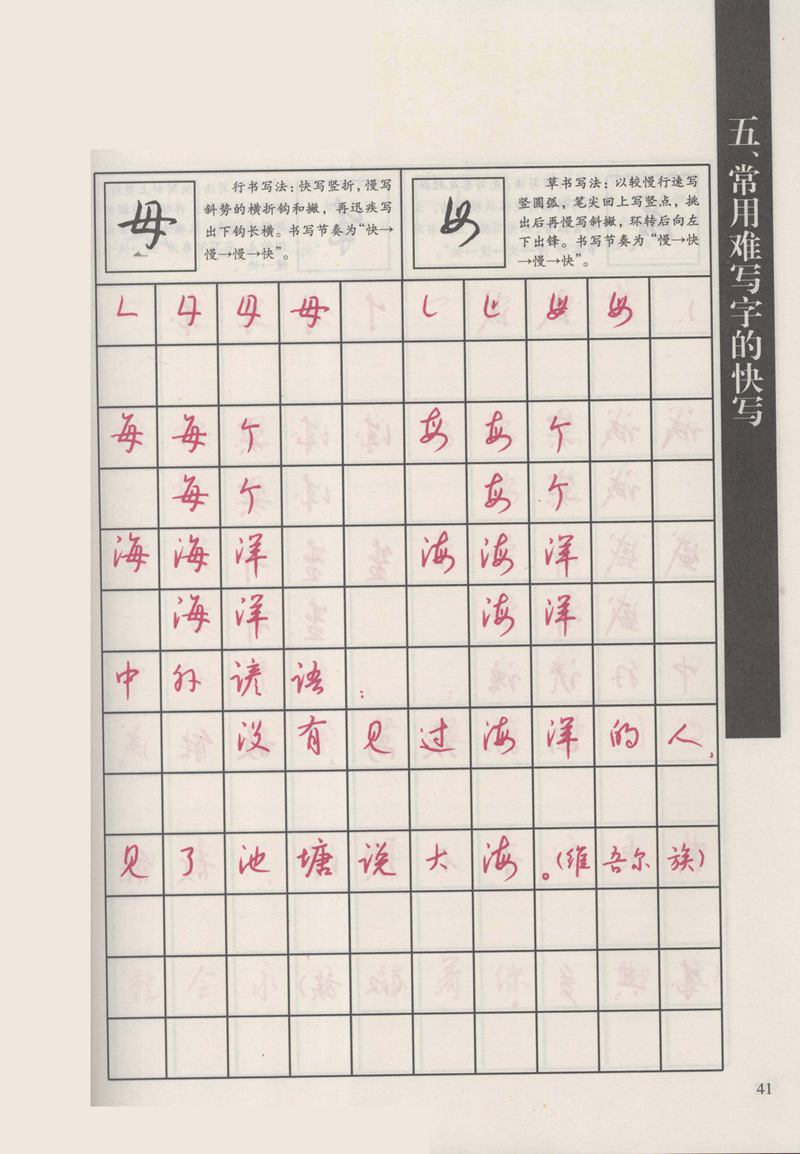 五、常用难写字的快写
母
行书写法：快写竖折，慢写
斜势的横折钩和撇，再迅疾写
出下钩长横。书写节奏为“快→
慢→慢→快”。
母
草书写法：以较慢行速写
竖圆弧，笔尖回上写竖点，挑
出后再慢写斜撇，环转后向左
下出锋。书写节奏为“慢→快
→慢→快”。
母 母
每 每 个 每 每 个
每 个 每 个
海 海 洋 海 海 洋
海 洋 海 洋
中 外 谚 语：
没 有 见 过 海 洋 的 人，
见 了 池 塘 说 大 海。（维 吾尔 族）
41